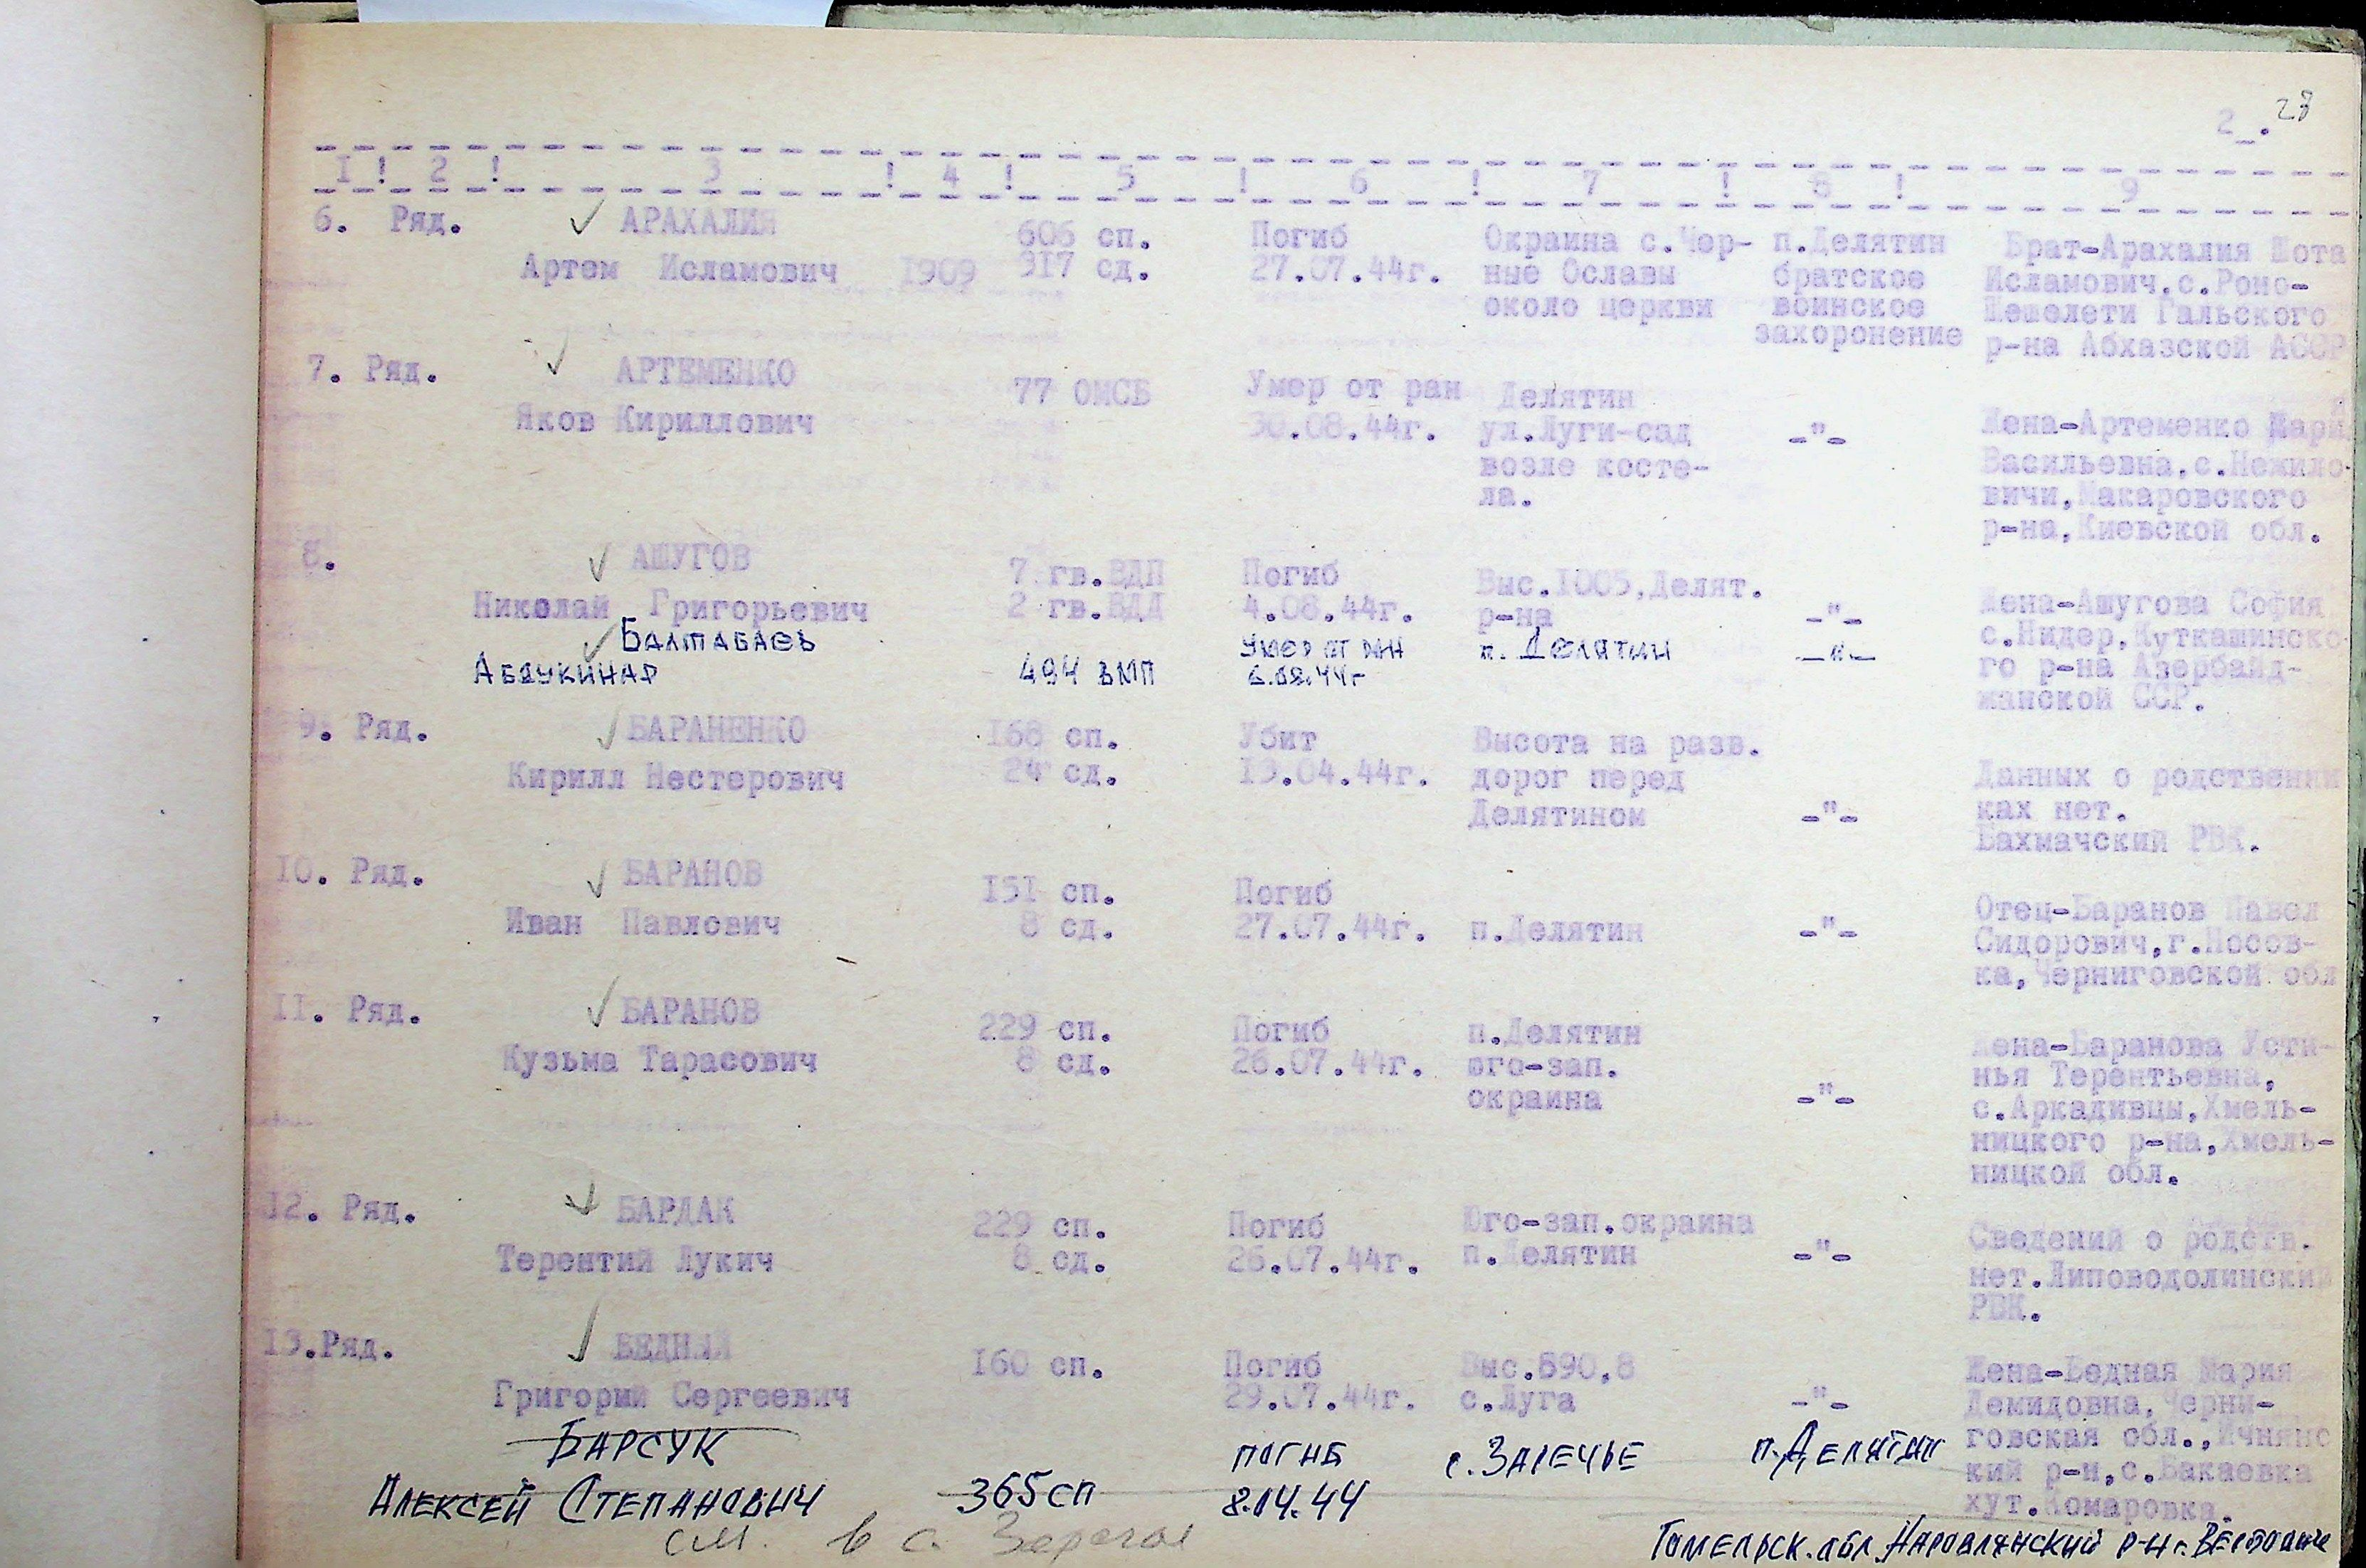 28
2_.
I ! 2 ! 3 ! 4 ! 5 ! 6 ! 7 ! 8 ! 9
6. Ряд. АРАХАЛИЯ 606 сп. Погиб Окраина с.Чер- п.Делятин Брат-Арахалия Шота
Артем Исламович 1909 317 сд. 27.07.44г. ные Ославы братское Исламович.с.Роно-
около церкви воинское Шешелети Гальского
захоронение р-на Абхазской АССР
7. Ряд. АРТЕМЕНКО 77 ОМСБ Умер от ран Делятин
Яков Кириллович 30.08.44г. ул.Луги-сад -"- Жена-Артеменко
возле косте- Васильевна,с.Нежило-
ла. вичи,Макаровского
р-на,Киевской обл.
8. АШУГОВ 7 гв.ВДП Погиб Выс.I005,Делят.
Николай Григорьевич 2 гв.ВДД 4.08.44г. р-на -"- Жена-Ашугова София
Балтабаев Умер от ран п. Делятин -"- с.Нидер,Куткашинско-
Абдукинар 494 6.08.44г го р-на Азербайд-
жанской ССР.
9. Ряд. БАРАНЕНКО I68 сп. Убит Высота на разв.
Кирилл Нестерович 24 сд. I3.04.44г. дорог перед Данных о родственни
Делятином -"- ках нет.
Бахмачский РВК.
I0. Ряд. БАРАНОВ I5I сп. Погиб
Иван Павлович 8 сд. 27.07.44г. п.Делятин -"- Отец-Баранов Павел
Сидорович,г.Носов-
ка,Черниговской обл
II. Ряд. БАРАНОВ 229 сп. Погиб п.Делятин
Кузьма Тарасович 8 сд. 26.07.44г. юго-зап. Жена-Баранова Усти-
окраина -"- нья Терентьевна,
с.Аркадивцы,Хмель-
ницкого р-на,Хмель-
ницкой обл.
I2. Ряд. БАРДАК 229 сп. Погиб Юго-зап.окраина
Терентий Лукич 8 сд. 26.07.44г. п.Делятин -"- Сведений о родств.
нет.Липоводолинский
РВК.
I3.Ряд. БЕДНЫЙ I60 сп. Погиб Выс.890,8 Жена-Бедная Мария
Григорий Сергеевич 29.07.44г. с.Луга -"- Демидовна,Черни-
Барсук погиб с. Заречье п. Делятин говская обл.,Ичнянс
Алексей Степанович 365 сп 8.04.44 кий р-н,с.Бакаевка
хут.Комаровка.
см. в с. Заречье
Гомельск. обл. Наровлянский р-н